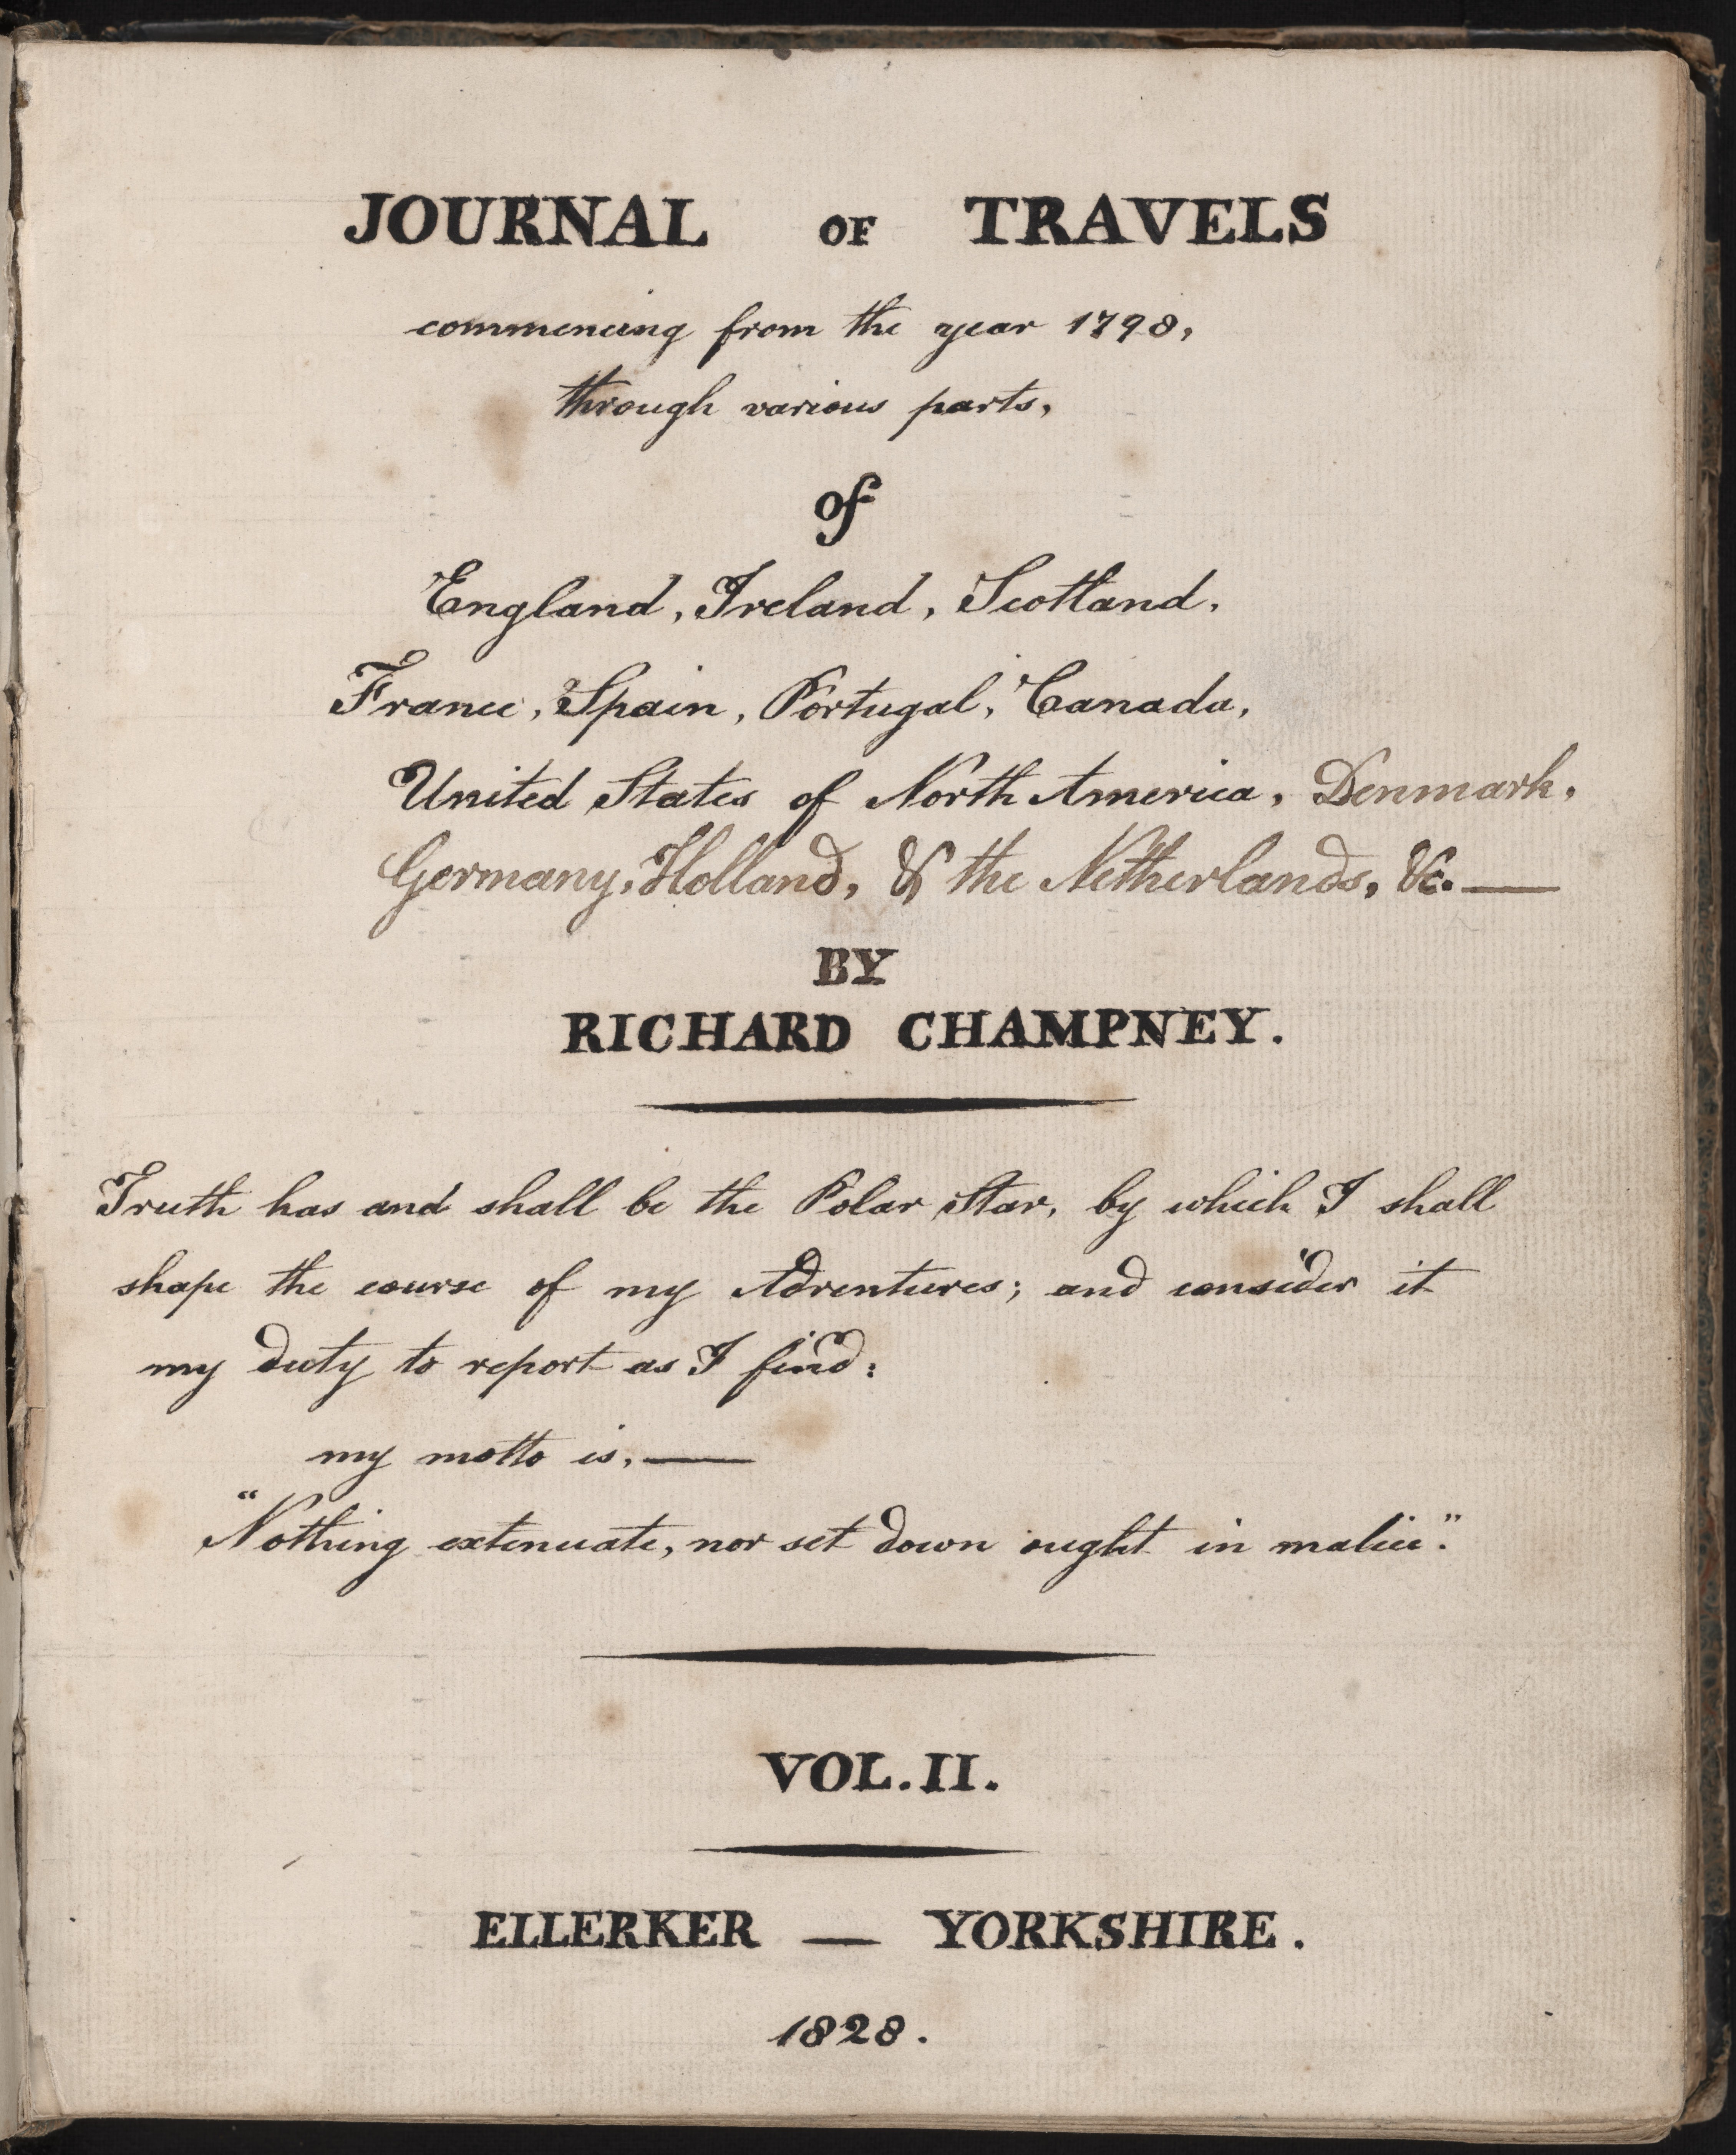 JOURNAL OF TRAVELS
commencing from the year 1798,
through various parts,
of
England, Ireland, Scotland,
France, Spain, Portugal, Canada,
United States of North America, Denmark,
Germany, Holland, & the Netherlands, &c. —
BY
RICHARD CHAMPNEY.
Truth has and shall be the Polar Star, by which I shall
shape the course of my Adventures; and consider it
my duty to report as I find:
my motto is, —
"Nothing extenuate, nor set down ought in malice".
VOL. II.
ELLERKER — YORKSHIRE.
1828.